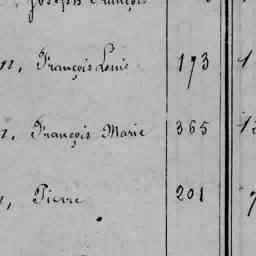 Joseph François
n, François Louis 173 1
n, François Marie 365 1
, Pierre 201